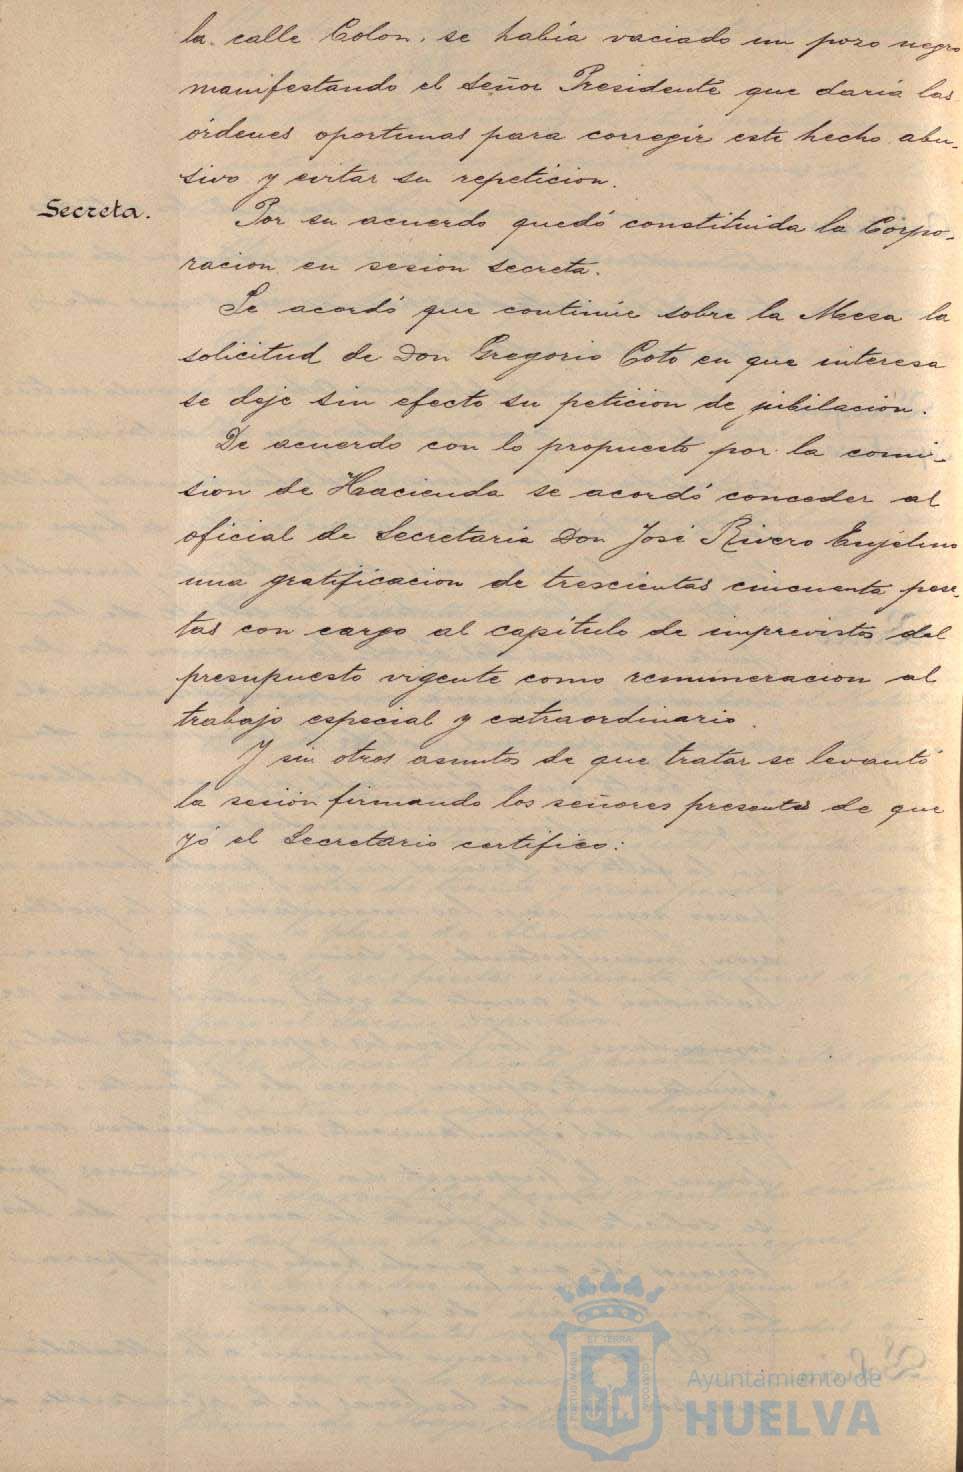 la calle Colon, se había vaciado un pozo negro
manifestando el Señor Presidente que daria las
órdenes oportunas para corregir este hecho abu-
sivo y evitar su repeticion.
Secreta.
Por su acuerdo quedó constituida la Corpo-
racion en sesion secreta.
Se acordó que continúe sobre la Mesa la
solicitud de Don Gregorio Coto en que interesa
se deje sin efecto su peticion de jubilacion.
De acuerdo con lo propuesto por la comi-
sion de Hacienda se acordó conceder al
oficial de Secretaria Don José Rivero
una gratificacion de trescientas cincuenta pese-
tas con cargo al capítulo de imprevistos del
presupuesto vigente como remuneracion al
trabajo especial y extraordinario.
Y sin otros asuntos de que tratar se levantó
la sesión firmando los señores presentes de que
yó el Secretario certifico:
Ayuntamiento de
HUELVA